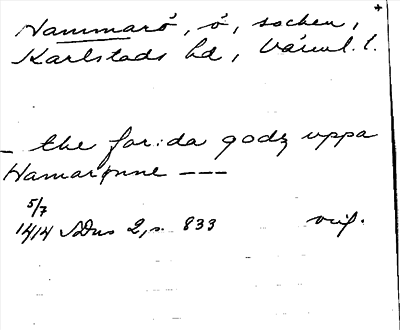 Hammarö, ö, socken,
Karlstads hd, Värml. l.
– the for:da godz uppa
Hamarönne ---
5/7
1414 SDns 2, s. 833 orig.